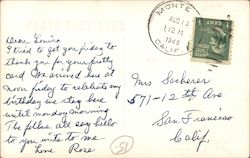 Dear Louisa
I tried to get you friday to
thank you for your pretty
card. We arrived here at
noon friday to celebrate my
birthday we stay here
until monday morning
The fellas all say hello
to you write to me
Love Rose
MONTE
AUG 13
12 M
CALIF.
1 CENT 1
Mrs
571-12th Ave
San Francisco
Calif